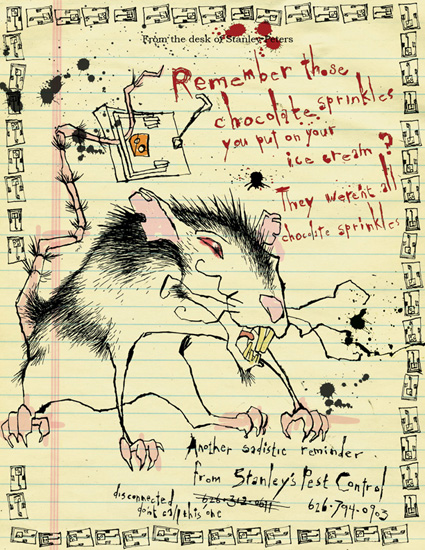 From the desk of Stanley Peters
Remember those
chocolate sprinkles
you put on your
ice cream?
They weren't all
chocolate sprinkles
Another sadistic reminder
from Stanley's Pest Control
disconnected 626-312-0611 626-794-0903
don't call this one